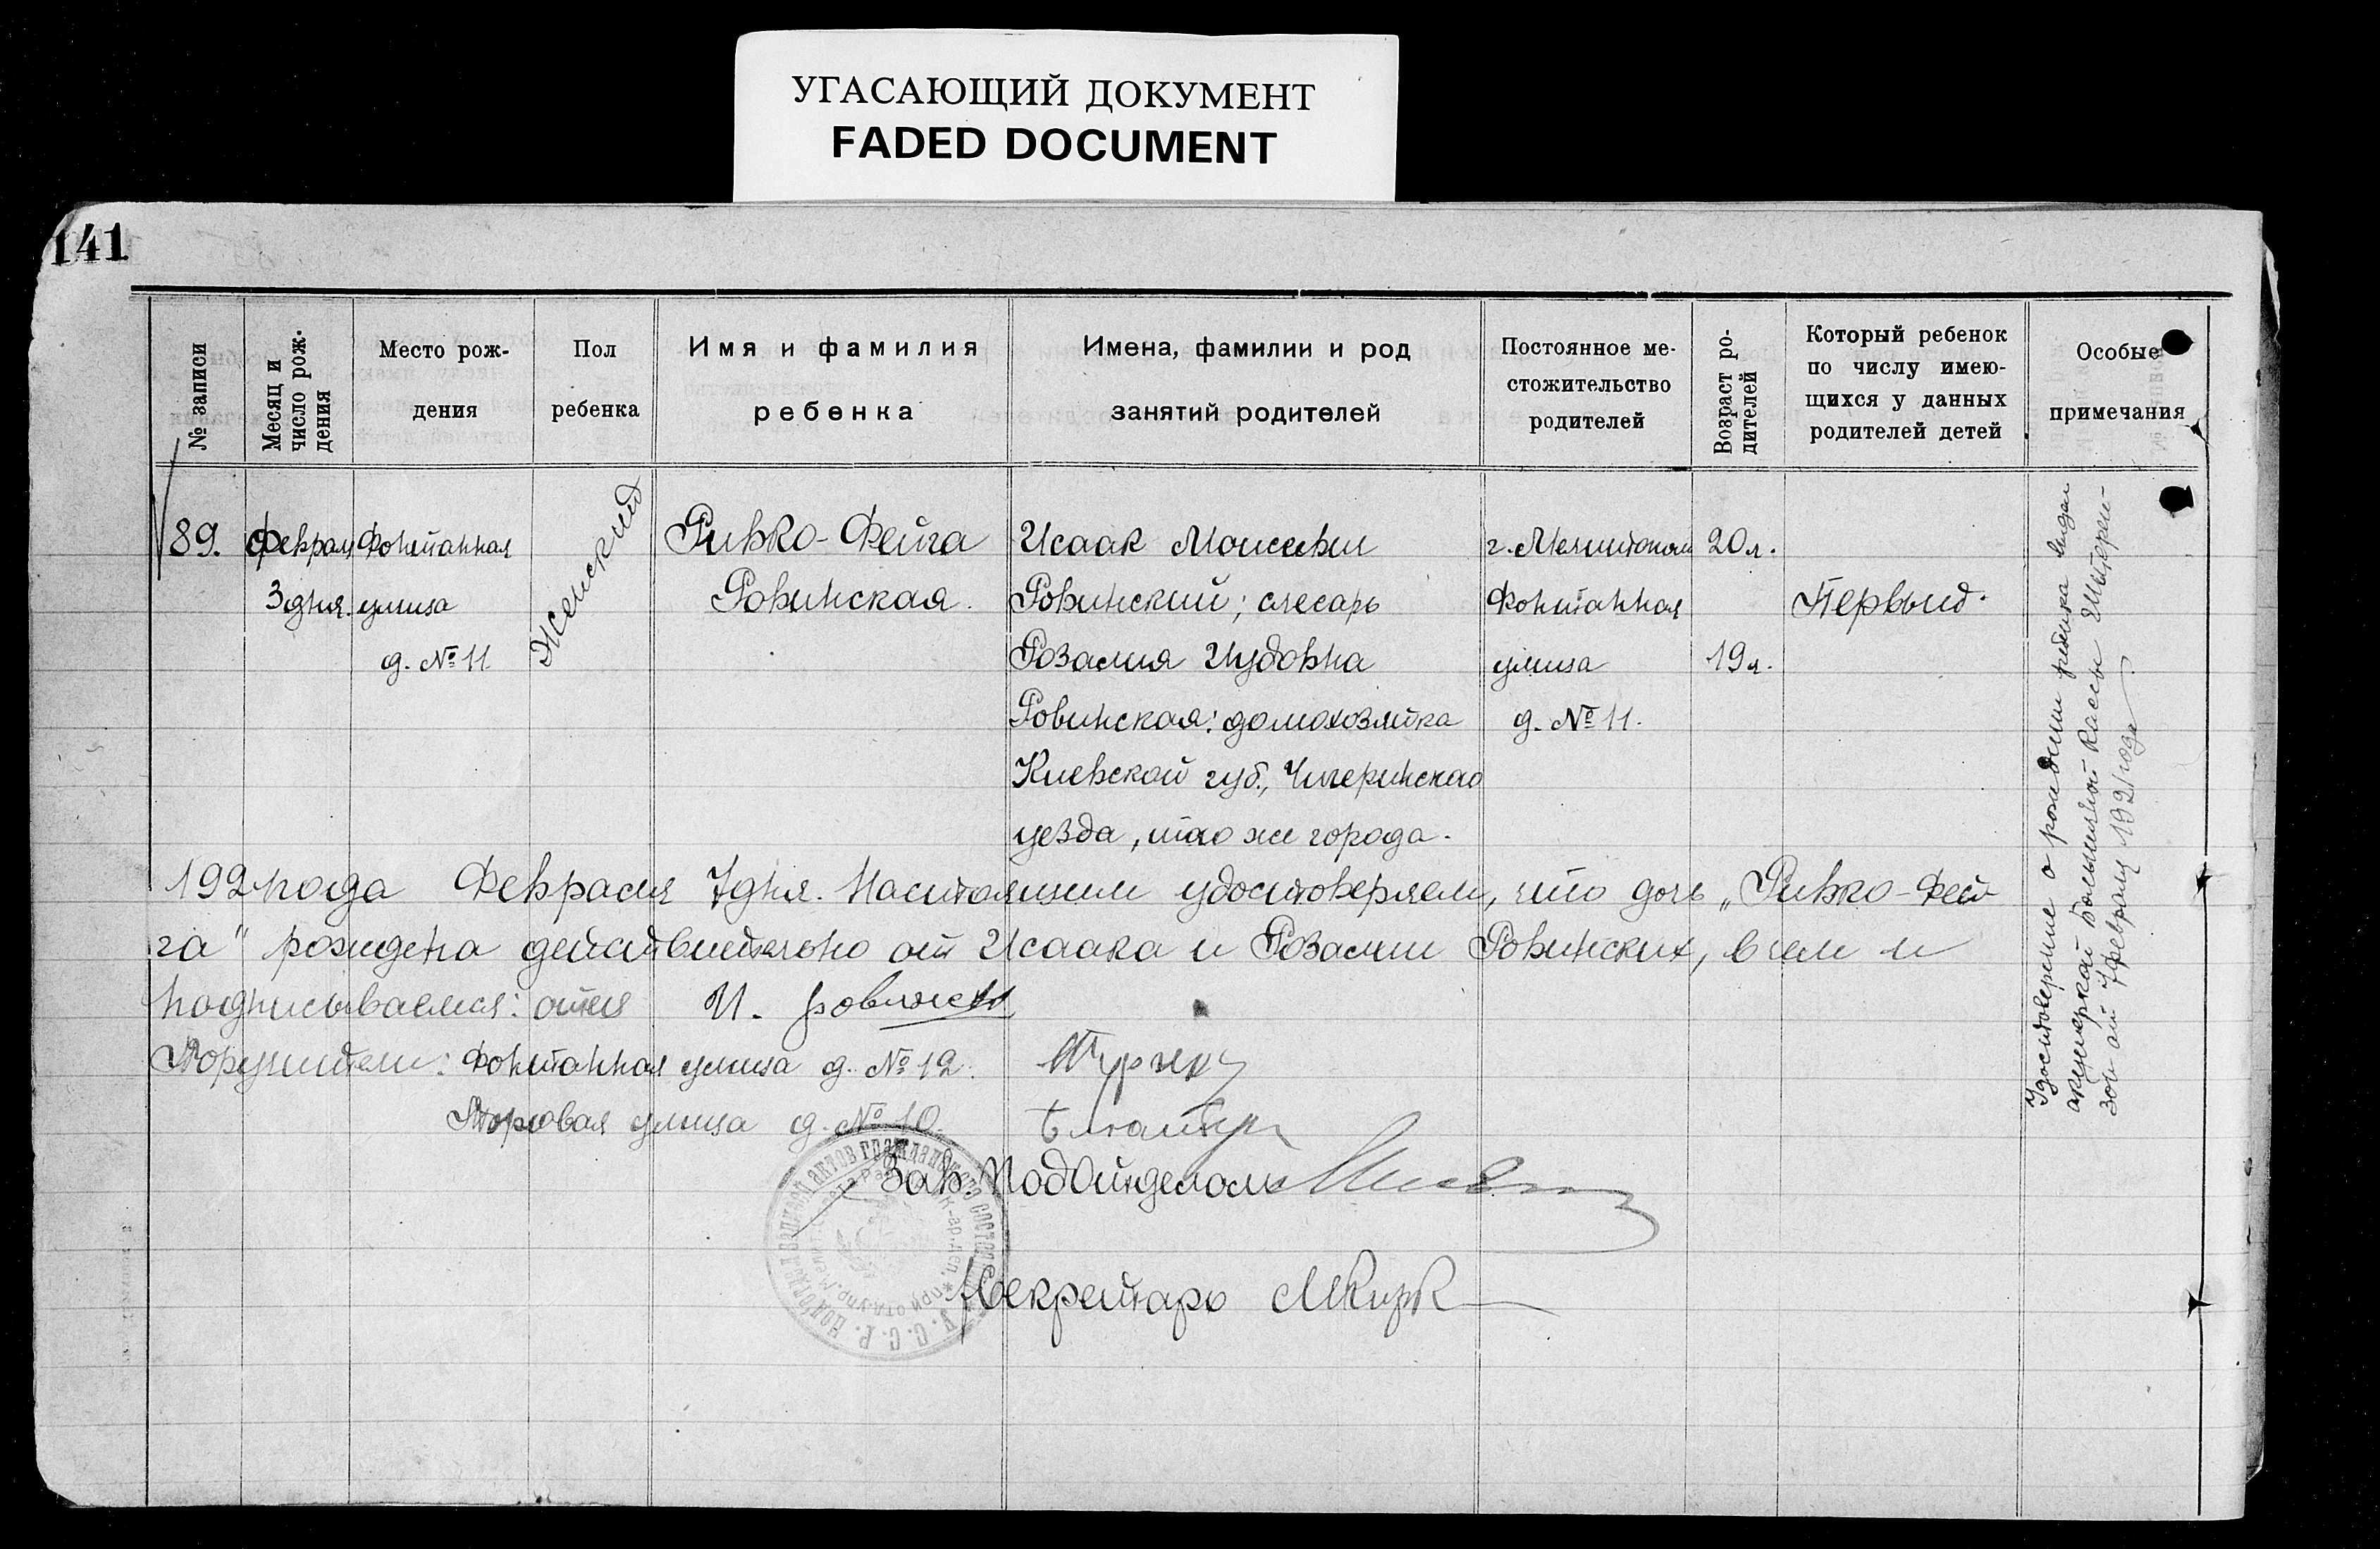 УГАСАЮЩИЙ ДОКУМЕНТ
FADED DOCUMENT
141
№ записи
Месяц и
число рож-
дения
Место рож-
дения
Пол
ребенка
Имя и фамилия
ребенка
Имена, фамилии и род
занятий родителей
Постоянное ме-
стожительство
родителей
Возраст ро-
дителей
Который ребенок
по числу имею-
щихся у данных
родителей детей
Особые
примечания
89.
Феврал
3 дня.
Фонтанная
улица
д. № 11
Женский
Ривко-Фейга
Ровинская.
Исаак Моисеевич
Ровинский; слесарь
Розалия Иудовна
Ровинская: домохозяйка
Киевской губ., Чигеринскаго
уезда, того же города.
г. Мелитополь
Фонтанная
улица
д. № 11.
20 л.
19 л.
Первый.
Удостоверение о рождении ребенка выдан
акушеркой Больничной Кассы
зон от 7 февраля 1921 года
1921 года Февраля 7 дня. Настоящим удостоверяем, что дочь „Ривко-Фей
га" рождена действительно от Исаака и Розалии Ровинских, в чем и
подписываемся: отец И. Ровинский
Поручители: Фонтанная улица д. № 12.
Торговая улица д. № 10.
Зав. ПодОтделом
Секретарь
У.С.С.Р. Подотдел записей актов гражданского состояния